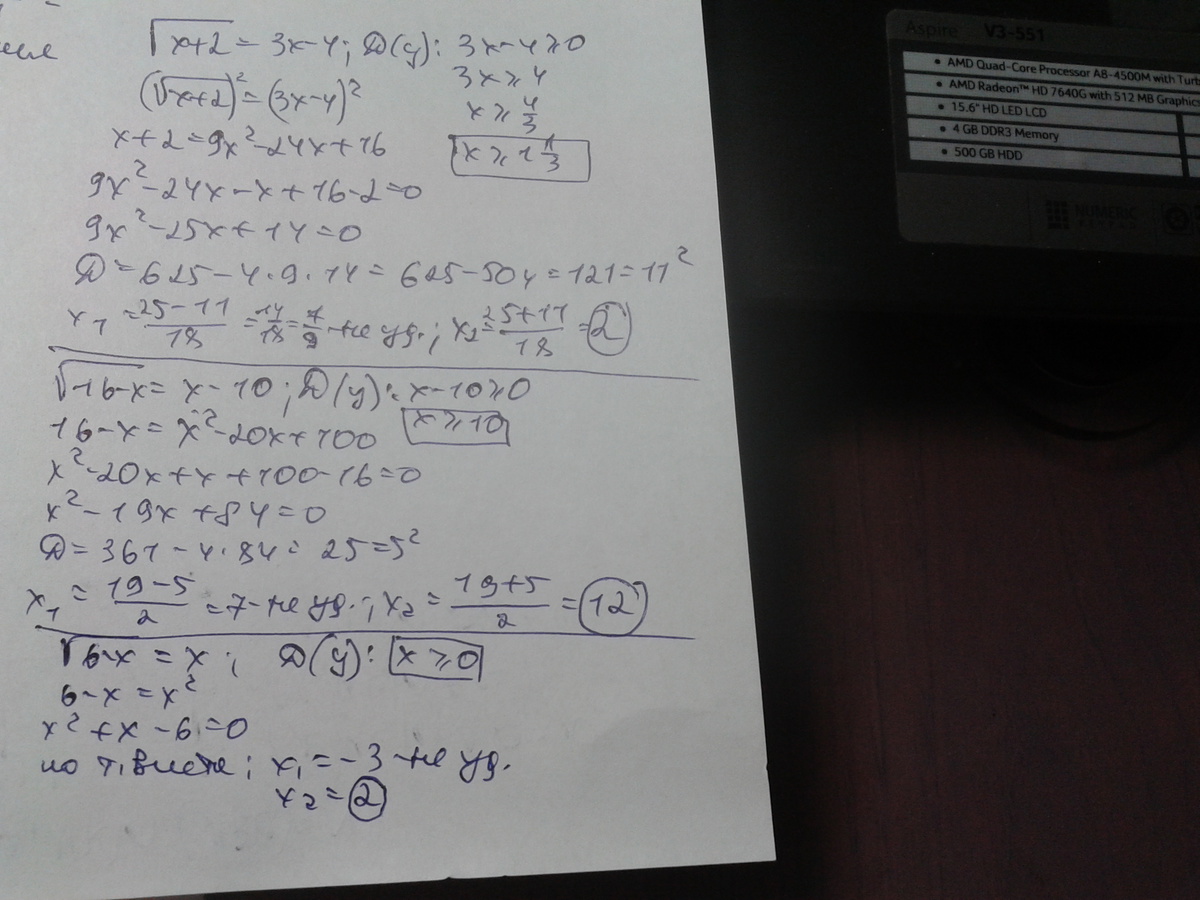 √x+2 = 3x-4; D(y): 3x-4≥0
(√x+2)² = (3x-4)² 3x≥4
x≥4/3
x+2=9x²-24x+16 x≥1 1/3
9x²-24x-x+16-2=0
9x²-25x+14=0
D=625-4·9·14=625-504=121=11²
x₁=25-11/18=14/18=7/9-не уд.; x₂=25+11/18=2
√16-x = x-10; D(y): x-10≥0
16-x=x²-20x+100 x≥10
x²-20x+x+100-16=0
x²-19x+84=0
D=361-4·84=25=5²
x₁=19-5/2=7-не уд.; x₂=19+5/2=12
√6-x=x; D(y): x≥0
6-x=x²
x²+x-6=0
по т. Виета; x₁=-3-не уд.
x₂=2
Aspire V3-551
• AMD Quad-Core Processor A8-4500M with Turb
• AMD Radeon™ HD 7640G with 512 MB Graphics
• 15.6" HD LED LCD
• 4 GB DDR3 Memory
• 500 GB HDD
NUMERIC